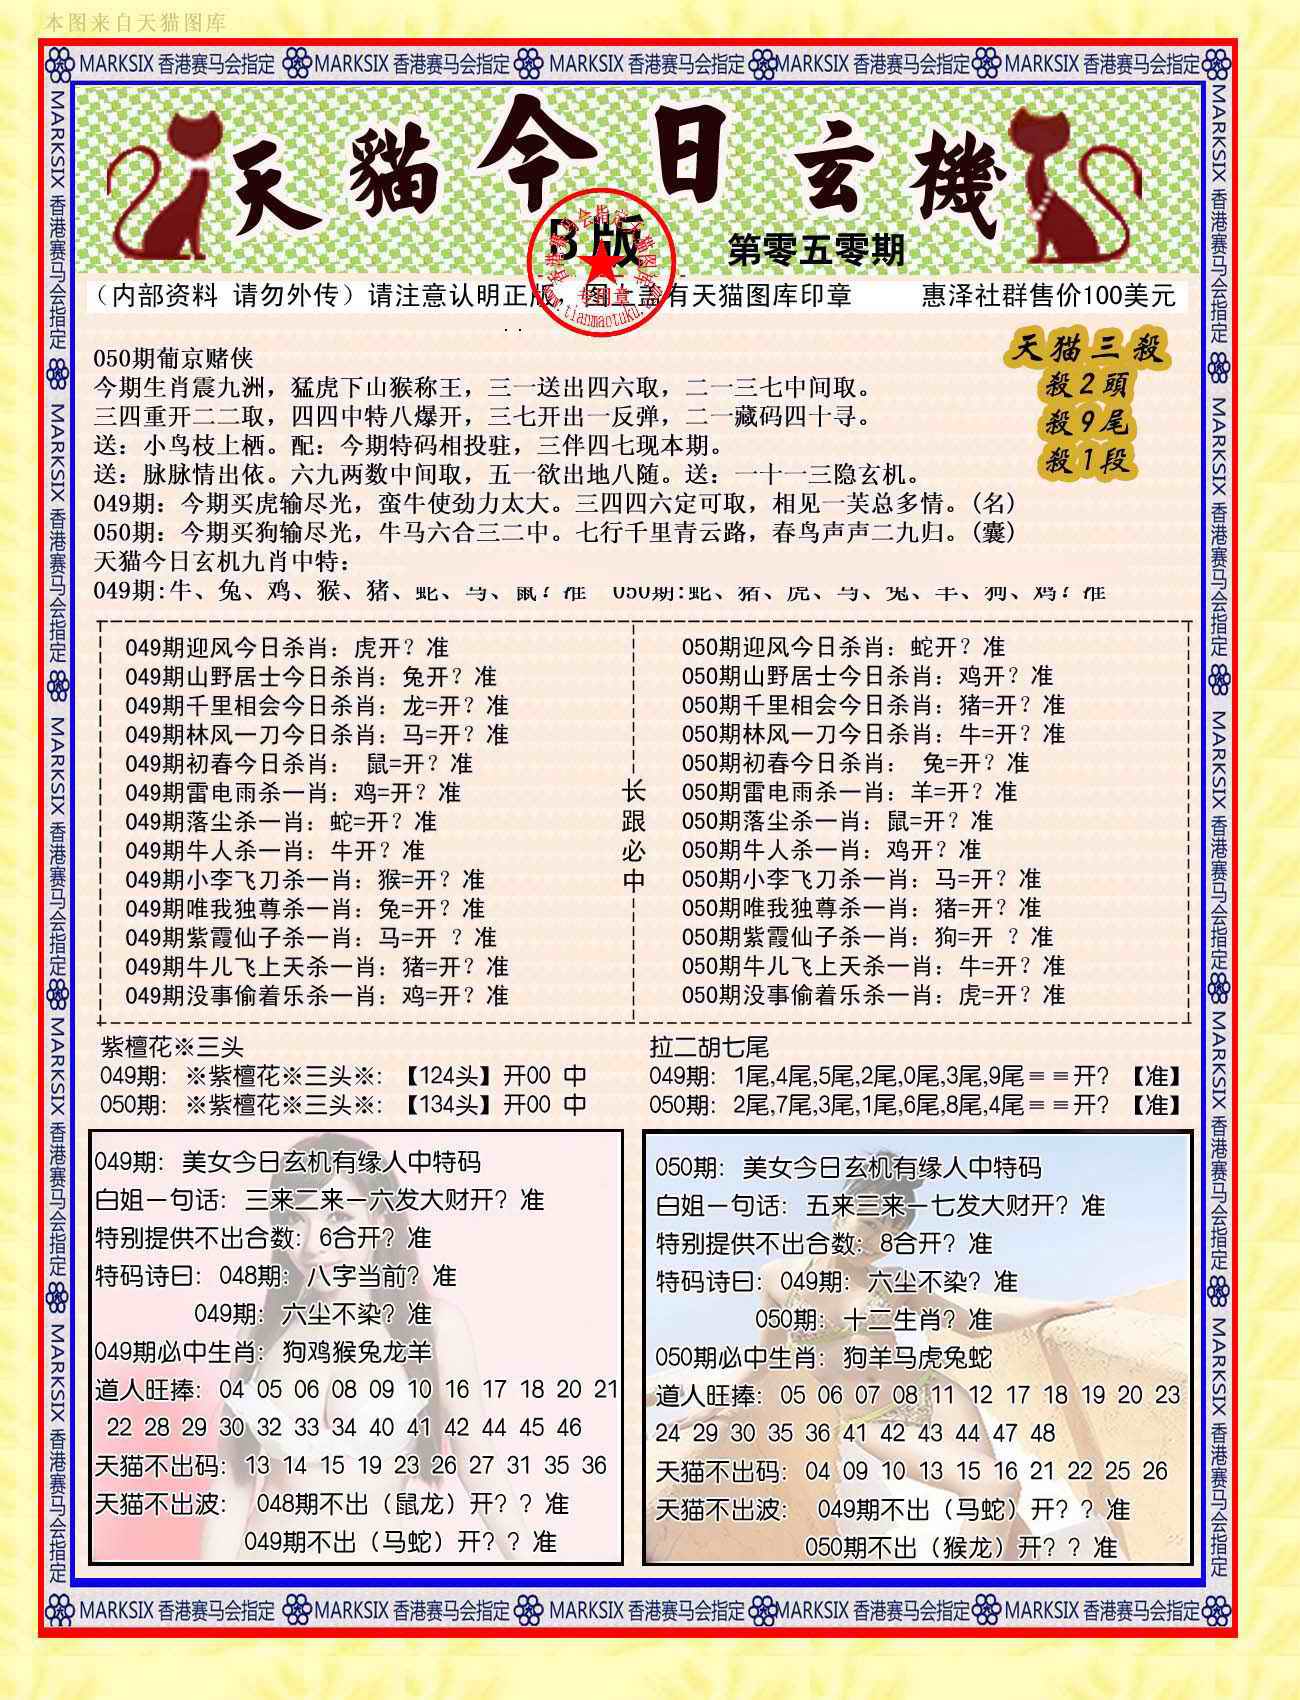 本图来自天猫图库
MARKSIX 香港赛马会指定 MARKSIX 香港赛马会指定 MARKSIX 香港赛马会指定 MARKSIX 香港赛马会指定 MARKSIX 香港赛马会指定
天貓今日玄機
B版
第零五零期
(内部资料 请勿外传)请注意认明正版,图上盖有天猫图库印章 惠泽社群售价100美元
香港赛马会指定天猫图库
专用章
www.tianmaotuku.com
天猫三殺
殺2頭
殺9尾
殺1段
050期葡京赌侠
今期生肖震九洲,猛虎下山猴称王,三一送出四六取,二一三七中间取。
三四重开二二取,四四中特八爆开,三七开出一反弹,二一藏码四十寻。
送:小鸟枝上栖。配:今期特码相投驻,三伴四七现本期。
送:脉脉情出依。六九两数中间取,五一欲出地八随。送:一十一三隐玄机。
049期:今期买虎输尽光,蛮牛使劲力太大。三四四六定可取,相见一芙总多情。(名)
050期:今期买狗输尽光,牛马六合三二中。七行千里青云路,春鸟声声二九归。(囊)
天猫今日玄机九肖中特:
049期:牛、兔、鸡、猴、猪、蛇、马、鼠?准 050期:蛇、猪、虎、马、兔、羊、狗、鸡?准
049期迎风今日杀肖:虎开?准
049期山野居士今日杀肖:兔开?准
049期千里相会今日杀肖:龙=开?准
049期林风一刀今日杀肖:马=开?准
049期初春今日杀肖: 鼠=开?准
049期雷电雨杀一肖:鸡=开?准
049期落尘杀一肖:蛇=开?准
049期牛人杀一肖:牛开?准
049期小李飞刀杀一肖:猴=开?准
049期唯我独尊杀一肖:兔=开?准
049期紫霞仙子杀一肖:马=开 ?准
049期牛儿飞上天杀一肖:猪=开?准
049期没事偷着乐杀一肖:鸡=开?准
长跟必中
050期迎风今日杀肖:蛇开?准
050期山野居士今日杀肖:鸡开?准
050期千里相会今日杀肖:猪=开?准
050期林风一刀今日杀肖:牛=开?准
050期初春今日杀肖: 兔=开?准
050期雷电雨杀一肖:羊=开?准
050期落尘杀一肖:鼠=开?准
050期牛人杀一肖:鸡开?准
050期小李飞刀杀一肖:马=开?准
050期唯我独尊杀一肖:猪=开?准
050期紫霞仙子杀一肖:狗=开 ?准
050期牛儿飞上天杀一肖:牛=开?准
050期没事偷着乐杀一肖:虎=开?准
紫檀花※三头
049期: ※紫檀花※三头※: 【124头】开00 中
050期: ※紫檀花※三头※: 【134头】开00 中
拉二胡七尾
049期: 1尾,4尾,5尾,2尾,0尾,3尾,9尾≡≡开? 【准】
050期: 2尾,7尾,3尾,1尾,6尾,8尾,4尾≡≡开? 【准】
049期: 美女今日玄机有缘人中特码
白姐一句话: 三来二来一六发大财开? 准
特别提供不出合数: 6合开? 准
特码诗曰: 048期: 八字当前? 准
049期: 六尘不染? 准
049期必中生肖: 狗鸡猴兔龙羊
道人旺捧: 04 05 06 08 09 10 16 17 18 20 21
22 28 29 30 32 33 34 40 41 42 44 45 46
天猫不出码: 13 14 15 19 23 26 27 31 35 36
天猫不出波: 048期不出(鼠龙)开?? 准
049期不出(马蛇)开?? 准
050期: 美女今日玄机有缘人中特码
白姐一句话: 五来三来一七发大财开? 准
特别提供不出合数: 8合开? 准
特码诗曰: 049期: 六尘不染? 准
050期: 十二生肖? 准
050期必中生肖: 狗羊马虎兔蛇
道人旺捧: 05 06 07 08 11 12 17 18 19 20 23
24 29 30 35 36 41 42 43 44 47 48
天猫不出码: 04 09 10 13 15 16 21 22 25 26
天猫不出波: 049期不出(马蛇)开?? 准
050期不出(猴龙)开?? 准
MARKSIX 香港赛马会指定 MARKSIX 香港赛马会指定 MARKSIX 香港赛马会指定 MARKSIX 香港赛马会指定 MARKSIX 香港赛马会指定
MARKSIX 香港赛马会指定 MARKSIX 香港赛马会指定 MARKSIX 香港赛马会指定 MARKSIX 香港赛马会指定 MARKSIX 香港赛马会指定
MARKSIX 香港赛马会指定 MARKSIX 香港赛马会指定 MARKSIX 香港赛马会指定 MARKSIX 香港赛马会指定 MARKSIX 香港赛马会指定